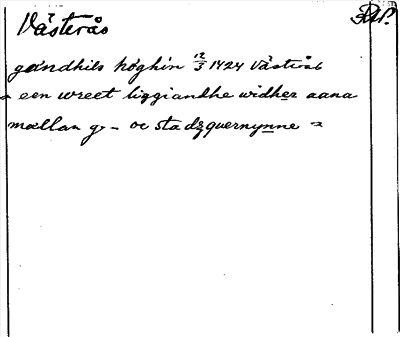 Västerås
gandhils höghin 12/3 1424 Västerås
een wreet liggiandhe widher aana
mællan g- oc stadzquernynne